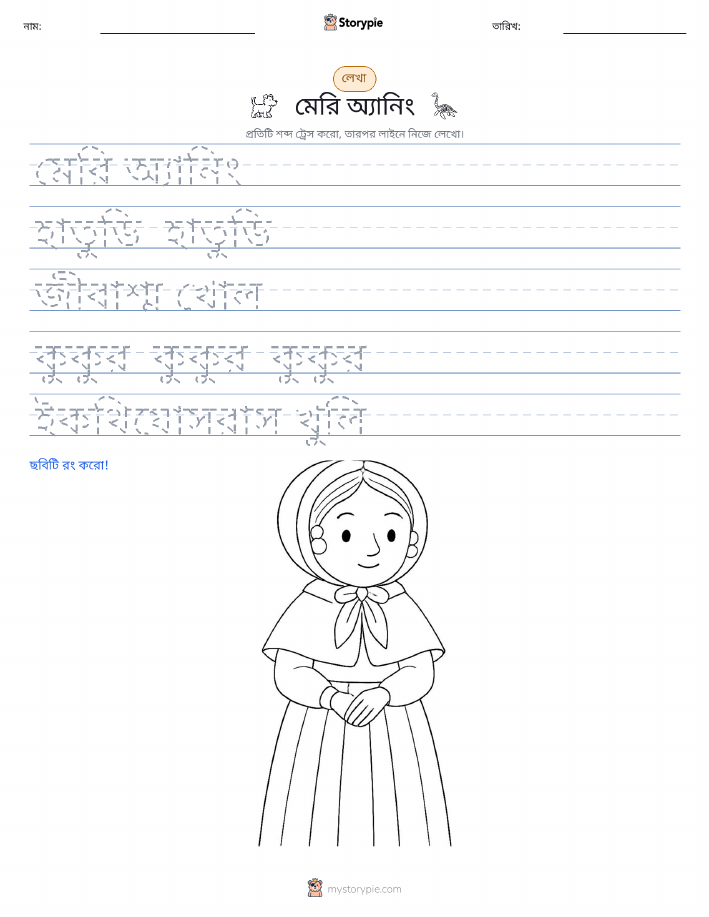 নাম: Storypie তারিখ:
লেখা
মেরি অ্যানিং
প্রতিটি শব্দ ট্রেস করো, তারপর লাইনে নিজে লেখো।
মেরি অ্যানিং
হাতুড়ি হাতুড়ি
জীবাশ্ম খোল
কুকুর কুকুর কুকুর
ইকথিয়োসরাস খুলি
ছবিটি রং করো!
mystorypie.com